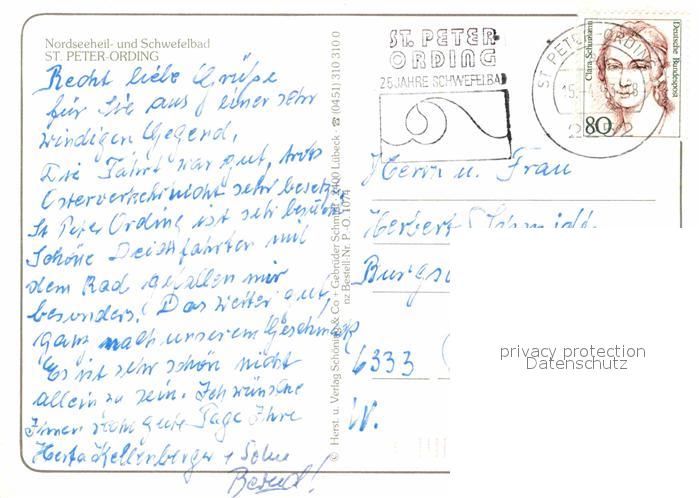 Nordseeheil- und Schwefelbad
ST. PETER-ORDING
Recht liebe Grüße
für Sie aus einer sehr
windigen Gegend,
Die Fahrt war gut, trotz
Osterverkehr nicht sehr besetzt
St. Peter Ording ist sehr besucht
Schöne Deichfahrten mit
dem Rad gefallen mir
besonders. Das Wetter gut,
ganz nach unserem Geschmack
Es ist sehr schön nicht
allein zu sein. Ich wünsche
Ihnen recht gute Tage Ihre
Herta Kellenberger + Sohn
Bernd!
© Herst. u. Verlag Schöning & Co + Gebrüder Schmidt, 2400 Lübeck - ☎ (0451) 310 310 0
nz Bestell-Nr. P.-O. 1074
ST. PETER
ORDING
25 JAHRE SCHWEFELBAD
ST. PETER-ORDING
2252
Clara Schumann
Deutsche Bundespost
80
Herrn u. Frau
Herbert Schmidt
Burgs
6333
W.
privacy protection
Datenschutz